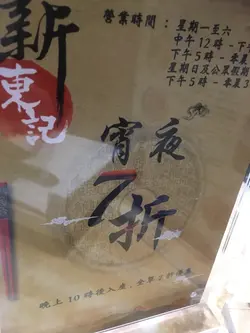 新東記
營業時間：星期一至六
中午12時 - 下午
下午5時 - 凌晨
星期日及公眾假期
下午5時 - 凌晨3
宵夜
7折
晚上10時後入座，全單7折優惠